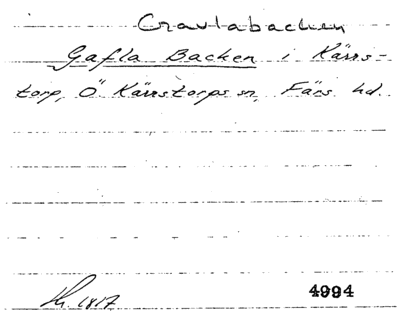 Gravlabacken
Gafla Backen i Kärrs-
torp, Ö Kärrstorps sn, Färs hd.
1817. 4994